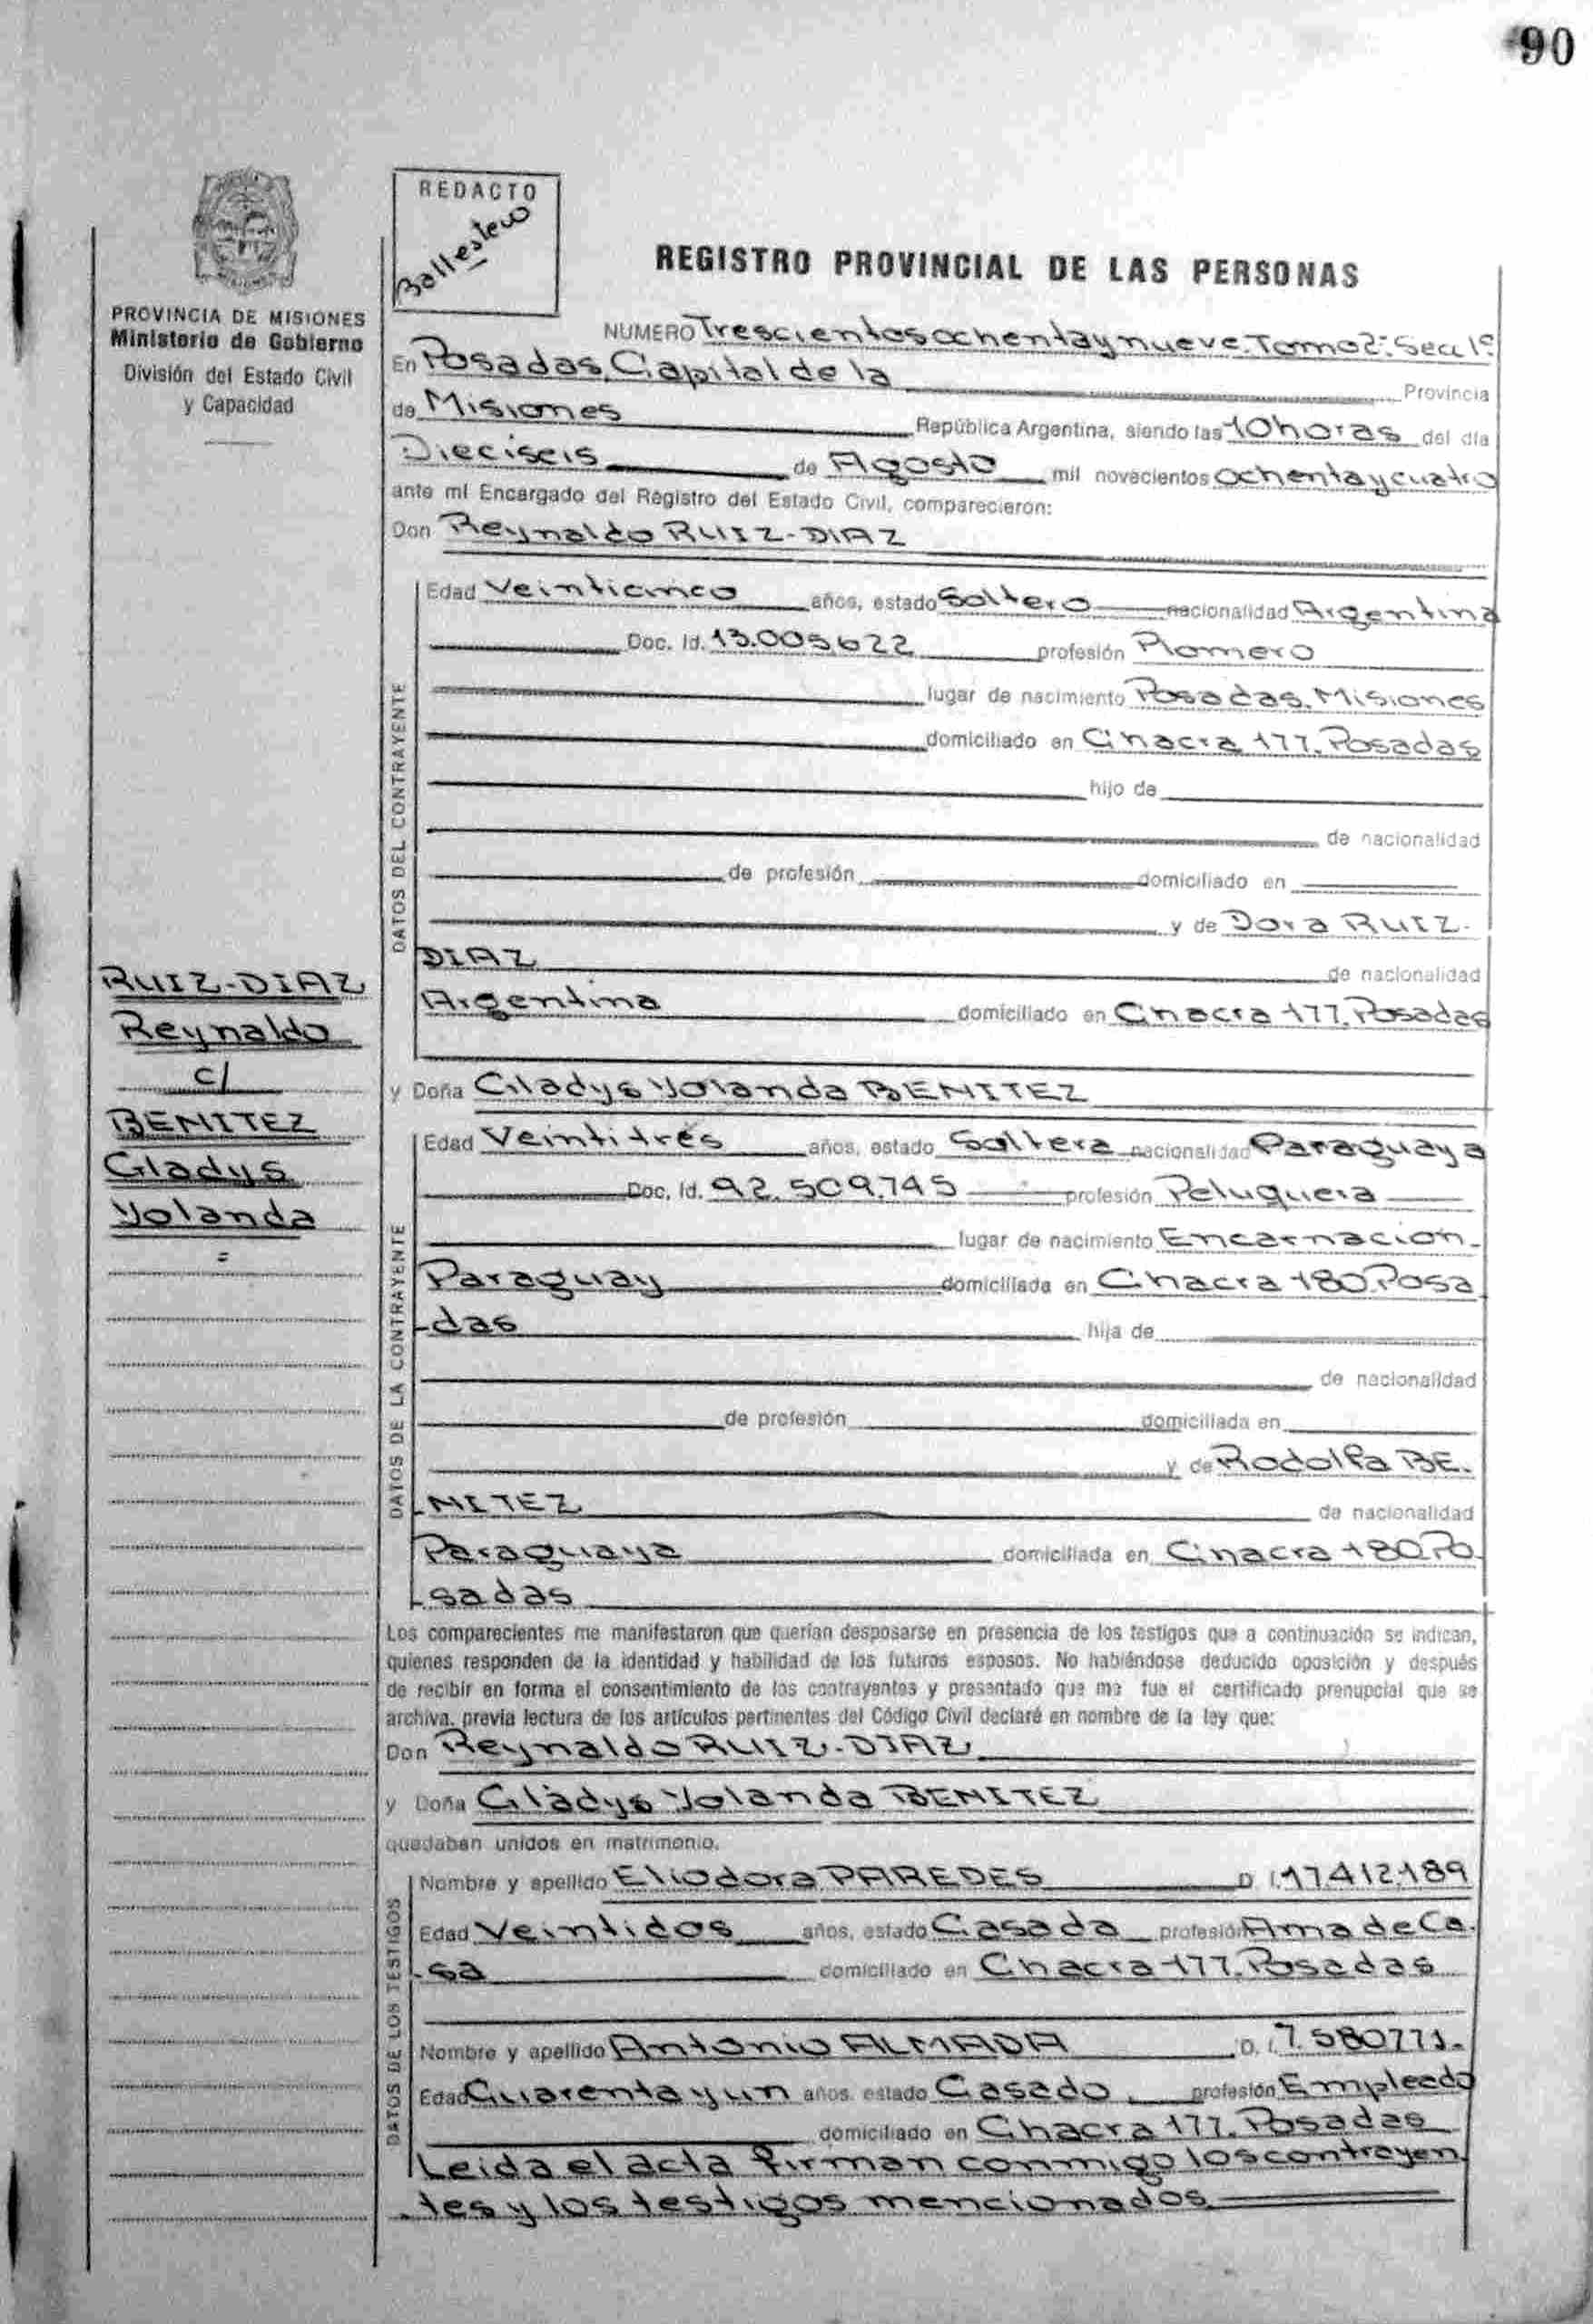 90
REDACTO
Ballestero
REGISTRO PROVINCIAL DE LAS PERSONAS
PROVINCIA DE MISIONES
Ministerio de Gobierno
División del Estado Civil
y Capacidad
NUMERO Trescientos ochenta y nueve. Tomo 2º. Secc 1º
En Posadas, Capital de la Provincia
de Misiones República Argentina, siendo las 10 horas del día
Dieciseis de Agosto mil novecientos ochenta y cuatro
ante mi Encargado del Registro del Estado Civil, comparecieron:
Don Reynaldo RUIZ-DIAZ
DATOS DEL CONTRAYENTE
Edad Veinticinco años, estado Soltero nacionalidad Argentina
Doc. Id. 13.005.622 profesión Plomero
lugar de nacimiento Posadas, Misiones
domiciliado en Chacra 177. Posadas
hijo de
de nacionalidad
de profesión domiciliado en
y de Dora RUIZ-
DIAZ de nacionalidad
Argentina domiciliado en Chacra 177. Posadas
RUIZ-DIAZ
Reynaldo
c/
BENITEZ
Gladys
Yolanda
=
y Doña Gladys Yolanda BENITEZ
DATOS DE LA CONTRAYENTE
Edad Veintitrés años, estado Soltera nacionalidad Paraguaya
Doc. Id. 92.509.745 profesión Peluquera
lugar de nacimiento Encarnación-
Paraguay domiciliada en Chacra 180. Posa
-das hija de
de nacionalidad
de profesión domiciliada en
y de Rodolfa BE-
-NITEZ de nacionalidad
Paraguaya domiciliada en Chacra 180. Po-
-sadas
Los comparecientes me manifestaron que querían desposarse en presencia de los testigos que a continuación se indican,
quienes responden de la identidad y habilidad de los futuros esposos. No habiéndose deducido oposición y después
de recibir en forma el consentimiento de los contrayentes y presentado que me fue el certificado prenupcial que se
archiva, previa lectura de los artículos pertinentes del Código Civil declaré en nombre de la ley que:
Don Reynaldo RUIZ-DIAZ
y Doña Gladys Yolanda BENITEZ
quedaban unidos en matrimonio.
DATOS DE LOS TESTIGOS
Nombre y apellido Eliodora PAREDES D. I. 17412.189
Edad Veintidos años, estado Casada profesión Ama de Ca-
-sa domiciliado en Chacra 177. Posadas
Nombre y apellido Antonio ALMADA D. I. 7.580771.
Edad Cuarenta y un años, estado Casado profesión Empleado
domiciliado en Chacra 177. Posadas
Leída el acta firman conmigo los contrayen
-tes y los testigos mencionados